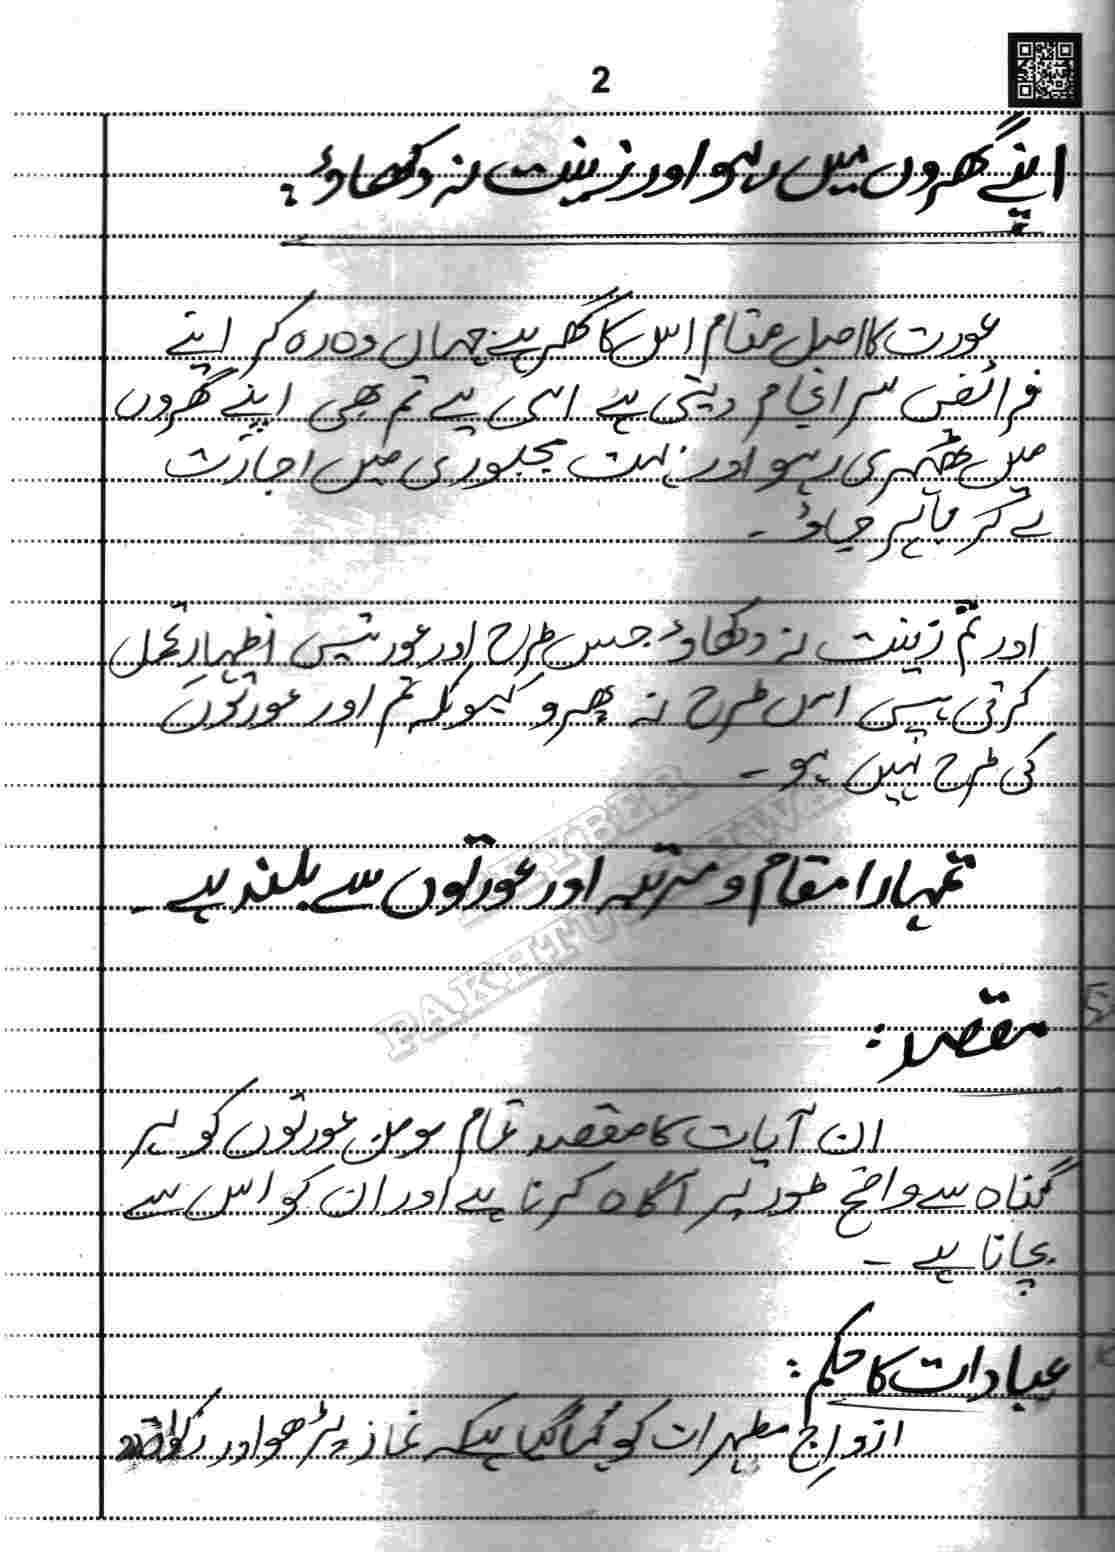 2
اپنے گھروں میں رہو اور زینت نہ دکھاؤ:
عورت کا اصل مقام اس کا گھر ہے جہاں وہ رہ کر اپنے
فرائض سر انجام دیتی ہے اسی لیے تم بھی اپنے گھروں
میں ٹھہری رہو اور بہت مجبوری میں اجازت
لے کر باہر جاؤ ۔
اور تم زینت نہ دکھاؤ جس طرح اور عورتیں اظہارِ تجمل
کرتی ہیں اس طرح نہ پھرو کیونکہ تم اور عورتوں
کی طرح نہیں ہو ۔
تمہارا مقام و مرتبہ اور عورتوں سے بلند ہے ۔
KHYBER
PAKHTUNKHWA
مقصد:
ان آیات کا مقصد تمام مومن عورتوں کو ہر
گناہ سے واضح طور پر آگاہ کرنا ہے اور ان کو اس سے
بچانا ہے ۔
عبادات کا حکم:
ازواجِ مطہرات کو کہا گیا ہے کہ نماز پڑھو اور زکوٰۃ دو